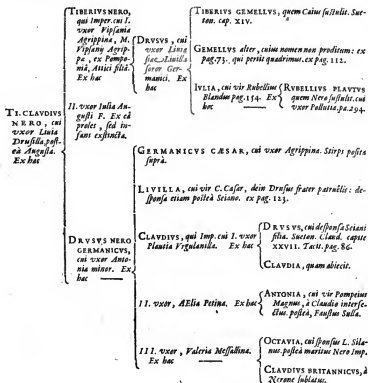 TI. CLAVDIVS
NERO, cui
vxor Liuia
Drusilla, post-
eà Augusta.
Ex hac
TIBERIVS NERO,
qui Imper. cui I.
vxor Vipsania
Agrippina, M.
Vipsany Agrip-
pa, ex Pompo-
niâ, Attici filiâ.
Ex hac
DRVSVS, cui
vxor Liuia
siue Liuilla
soror Ger-
manici. Ex
hac
TIBERIVS GEMELLVS, quem Caius sustulit. Sue-
ton. cap. XIV.
GEMELLVS alter, cuius nomen non proditum: ex
pag. 73. qui perit quadrimus. ex pag. 112.
IVLIA, cui vir Rubellius
Blandus pag. 154. Ex
hoc
RVBELLIVS PLAVTVS
quem Nero sustulit. cui
vxor Pollutia. pa. 294.
II. vxor Iulia Au-
gusti F. Ex eâ
proles, sed in-
fans exstincta.
DRVSVS NERO
GERMANICVS,
cui vxor Anto-
nia minor. Ex
hac
GERMANICVS CÆSAR, cui vxor Agrippina. Stirps posita
suprà.
LIVILLA, cui vir C. Cæsar, dein Drusus frater patruelis: de-
sponsa etiam posteà Seiano. ex pag. 123.
CLAVDIVS, qui Imp. cui I. vxor
Plautia Vrgulanilla. Ex hac
DRVSVS, cui desponsa Seiani
filia. Sueton. Claud. capite
XXVII. Tacit. pag. 86.
CLAVDIA, quam abiecit.
II. vxor, AElia Petina. Ex hac
ANTONIA, cui vir Pompeius
Magnus, à Claudio interfe-
ctus. posteà, Faustus Sulla.
III. vxor, Valeria Messallina.
Ex hac
OCTAVIA, cui sponsus L. Sila-
nus. posteà maritus Nero Imp.
CLAVDIVS BRITANNICVS, à
Nerone sublatus.